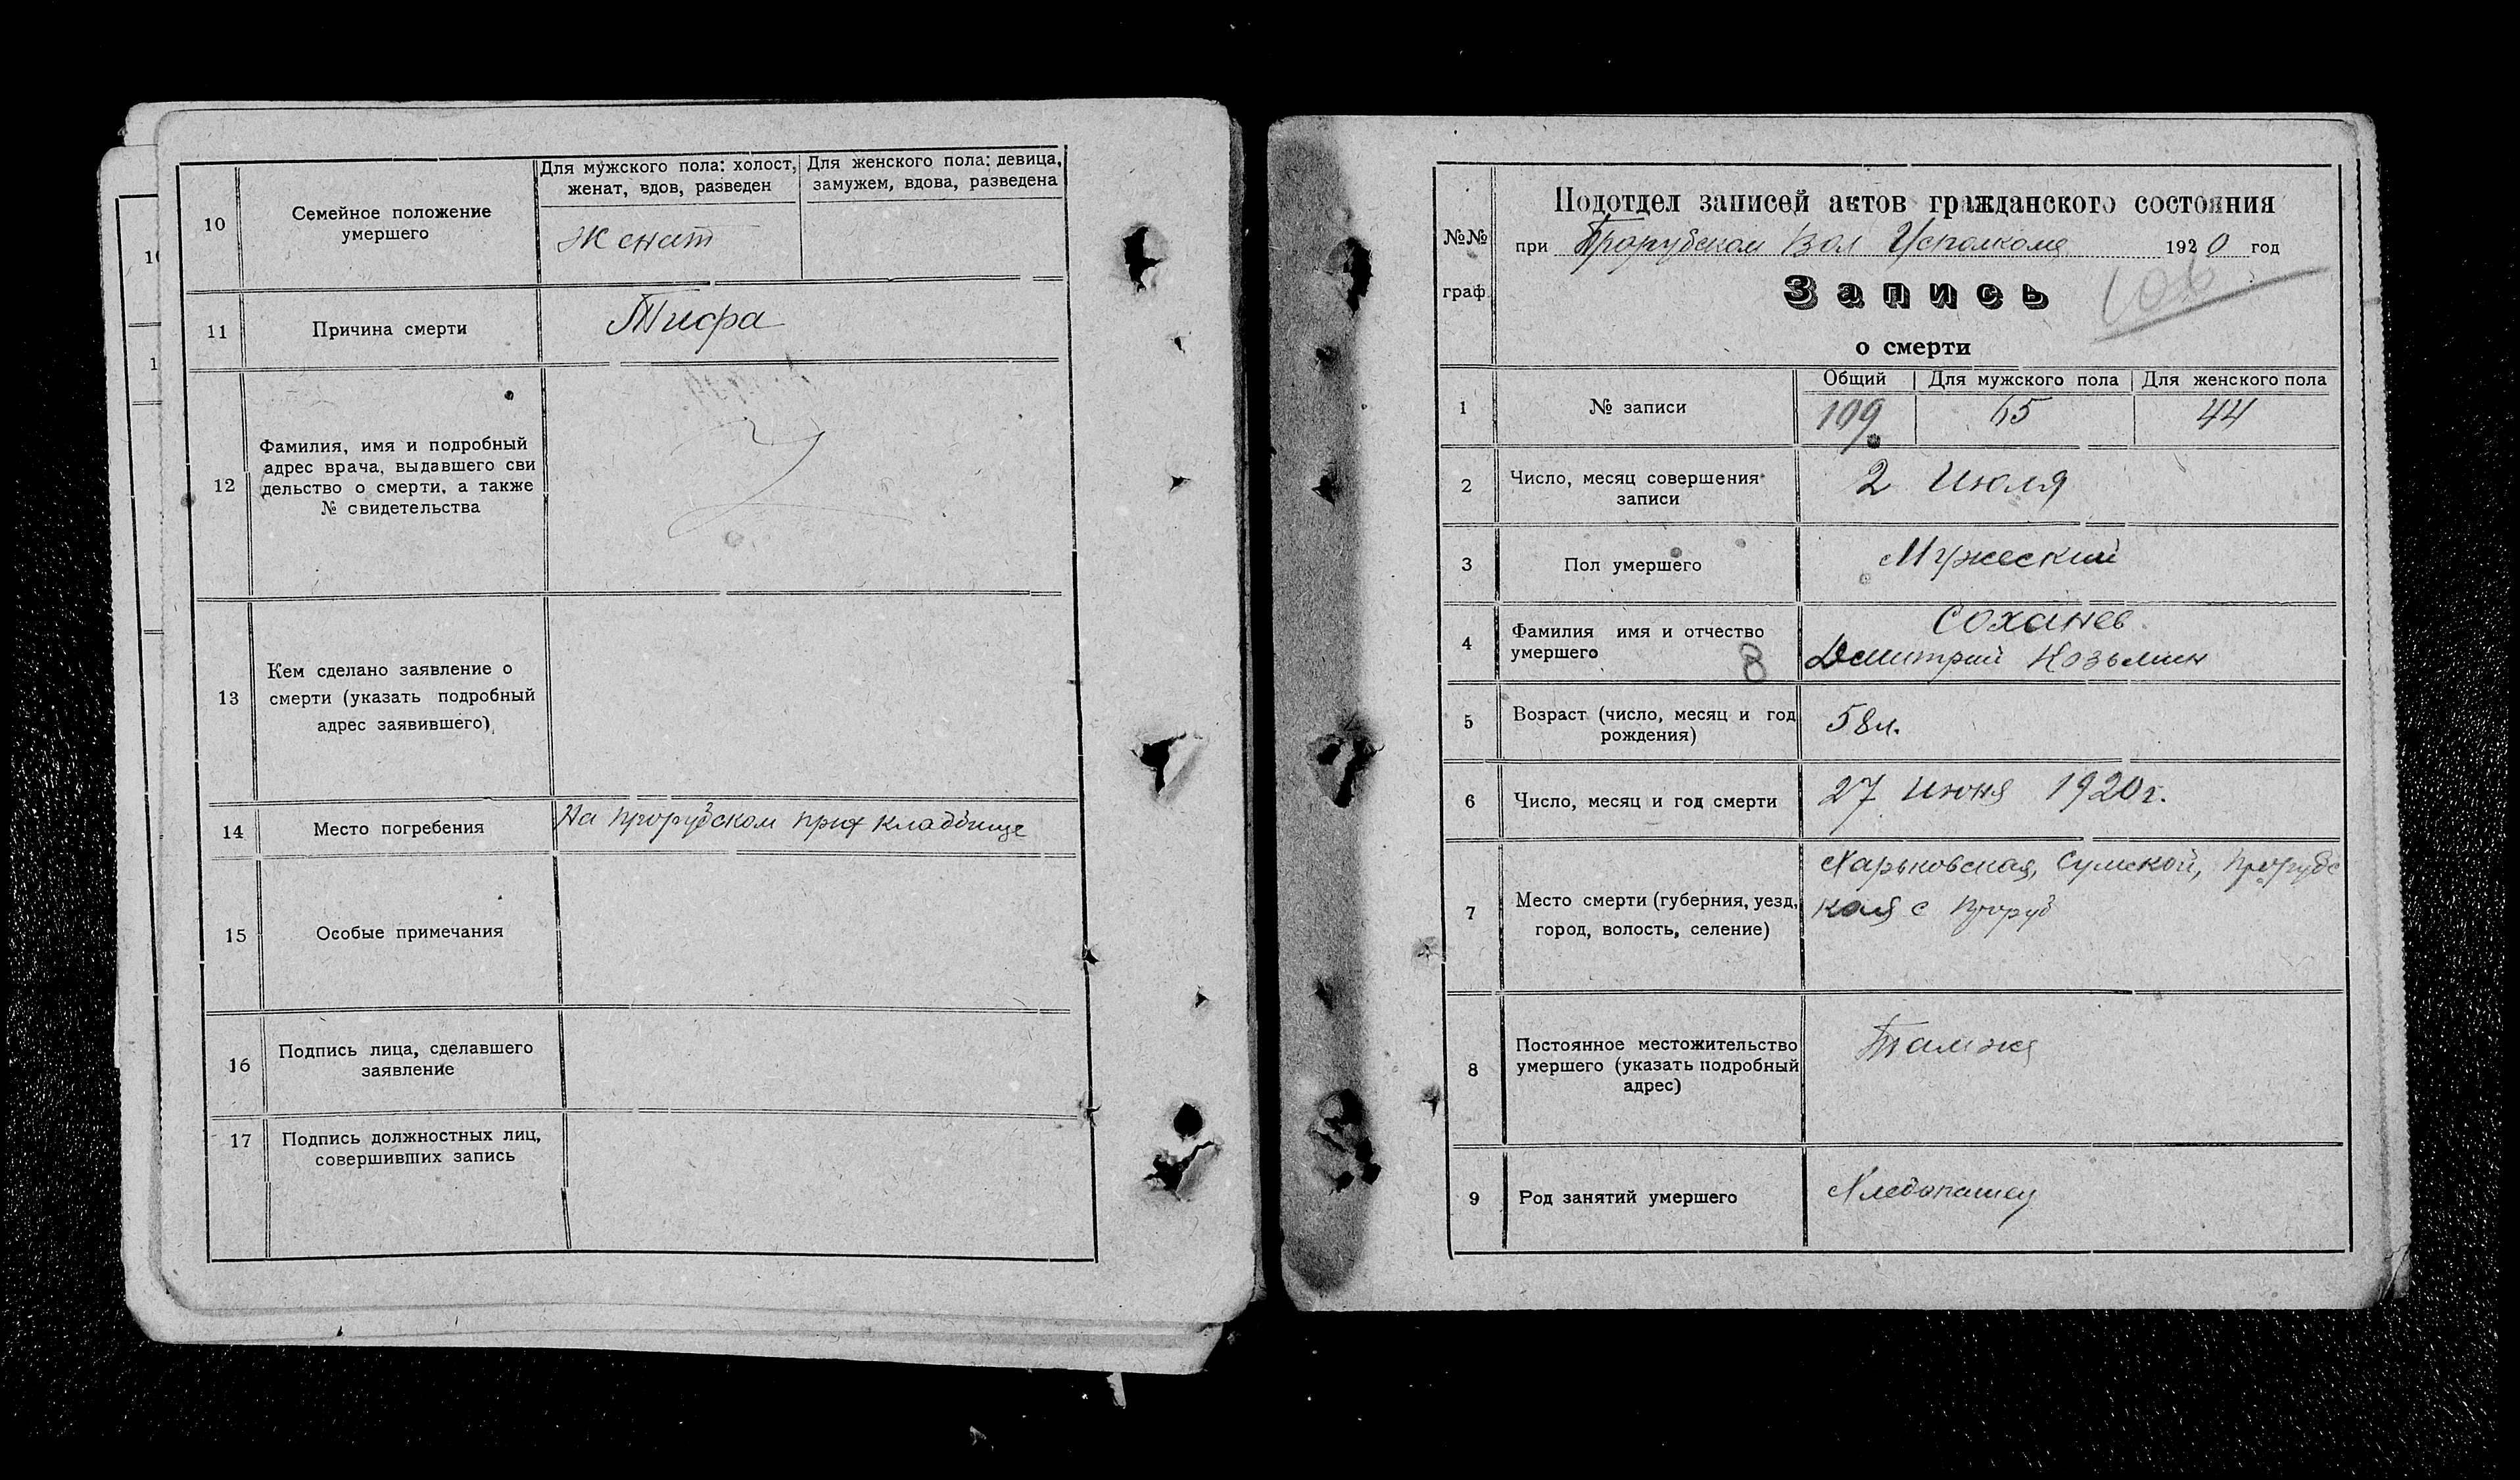 10
Семейное положение
умершего
Для мужского пола: холост,
женат, вдов, разведен
Для женского пола: девица,
замужем, вдова, разведена
Женат
11
Причина смерти
Тифа
12
Фамилия, имя и подробный
адрес врача, выдавшего сви
дельство о смерти, а также
№ свидетельства
13
Кем сделано заявление о
смерти (указать подробный
адрес заявившего)
14
Место погребения
На прорубском прих кладбище
15
Особые примечания
16
Подпись лица, сделавшего
заявление
17
Подпись должностных лиц,
совершивших запись
№№
граф.
Подотдел записей актов гражданского состояния
при Прорубском Вол Исполкоме 1920 год
Запись
о смерти
1
№ записи
Общий
Для мужского пола
Для женского пола
109
65
44
2
Число, месяц совершения
записи
2 Июля
3
Пол умершего
Мужеский
4
Фамилия имя и отчество
умершего
8
Соханев
Дмитрий Козьмин
5
Возраст (число, месяц и год
рождения)
58 л.
6
Число, месяц и год смерти
27 Июня 1920 г.
7
Место смерти (губерния, уезд,
город, волость, селение)
Харьковская, Сумской, Прорубс
кая с Проруб
8
Постоянное местожительство
умершего (указать подробный
адрес)
Там же
9
Род занятий умершего
Хлебопашец